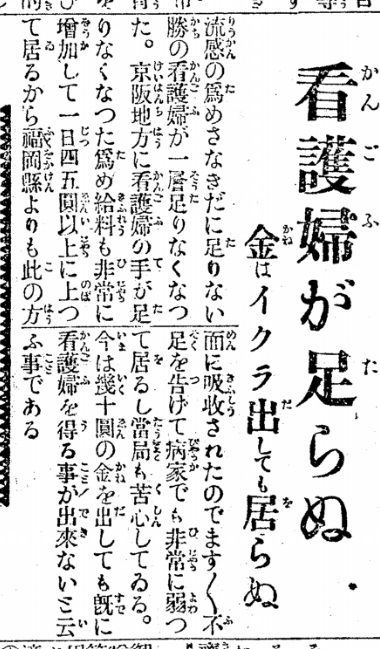 看護婦が足らぬ
金はイクラ出しても居らぬ
流感の爲めさなきだに足りない
勝の看護婦が一層足りなくなつ
た。京阪地方に看護婦の手が足
りなくなつた爲め給料も非常に
増加して一日四五圓以上に上つ
て居るから福岡縣よりも此の方
面に吸收されたのでます〱不
足を告げて病家でも非常に弱つ
て居るし當局も苦心してゐる。
今は幾十圓の金を出しても既に
看護婦を得る事が出來ないと云
ふ事である